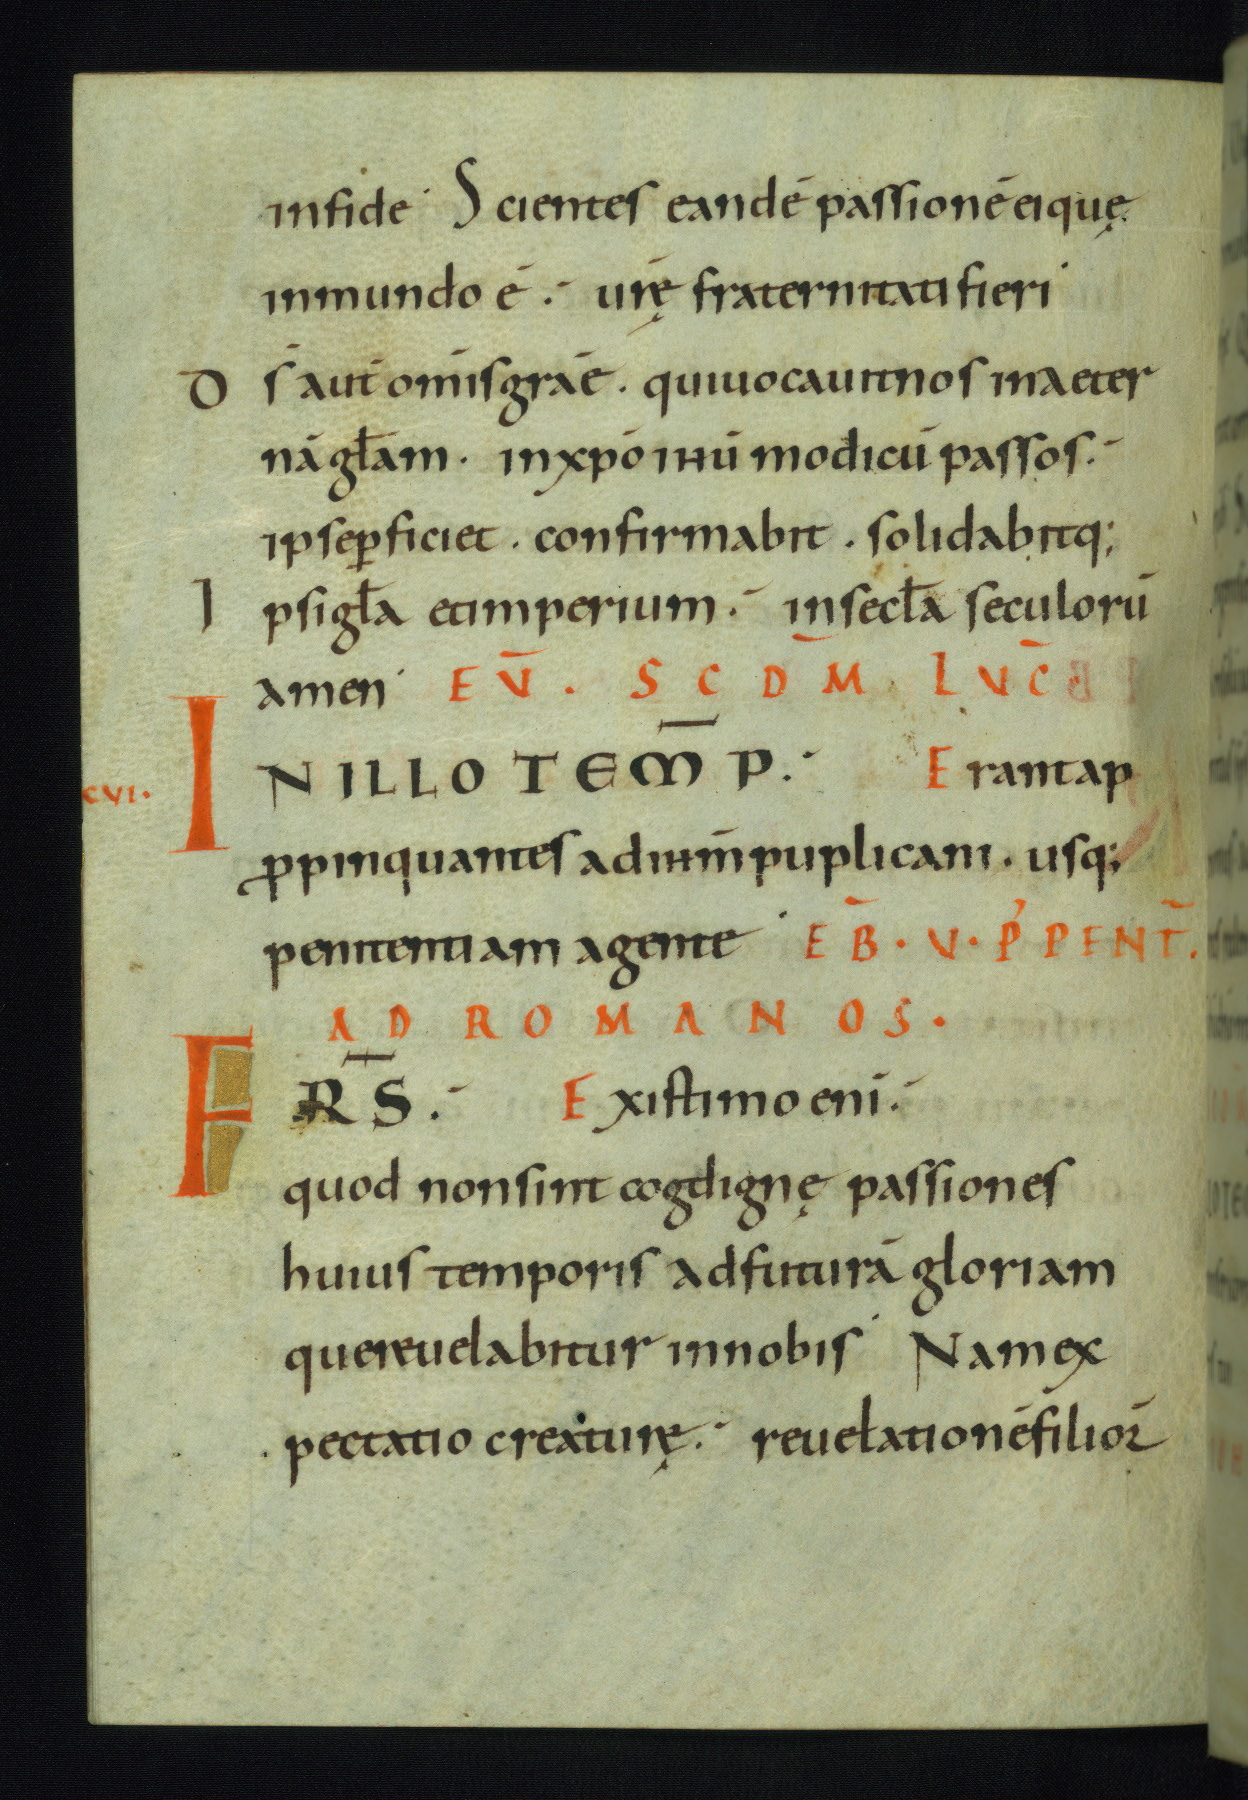 infide Scientes eandē passionē eiquę
inmundo ē. urę̄ fraternitati fieri
Ds̄ aut̄ om̄is grāe. quiuocauit nos inaeter
nā głam. inxp̄o ihū modicū passos.
ipse ꝑficiet. confirmabit. solidabitq;
Ipsi gła et imperium. insecła seculorū
amen EV̄. SCDM̄ LVC̄
CVI.
INILLO TEM̄P. Erant ap
ꝓpinquantes ad ihm̄ puplicani. usq;
penitentiam agente EB̄. V. P̓ PENT̄.
AD ROMANOS.
FR̄S. Existimo enī.
quod nonsint cogdignę passiones
huius temporis adfuturā gloriam
quereuelabitur innobis Namex
pectatio creaturę. reuelationē filioꝝ